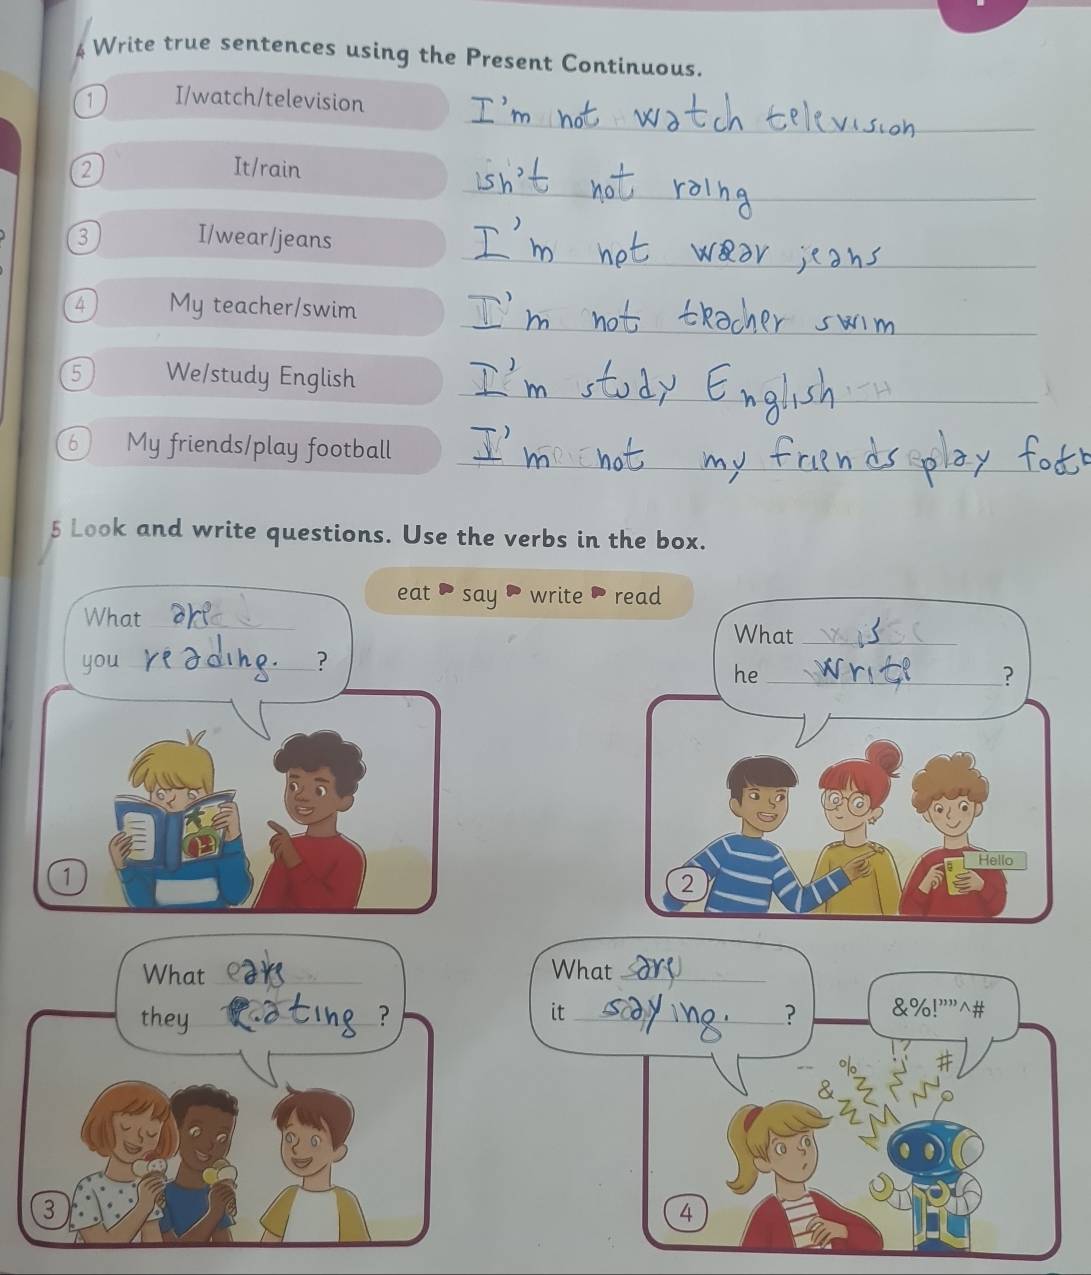 4 Write true sentences using the Present Continuous.
1 I/watch/television I'm not watch television
2 It/rain isn't not raing
3 I/wear/jeans I'm not wear jeans
4 My teacher/swim I'm not teacher swim
5 We/study English I'm study English
6 My friends/play football I'm not my friends play foot
5 Look and write questions. Use the verbs in the box.
eat say write read
What are
you reading. ?
What is
he write ?
Hello
1
2
What
they eating ?
What are
it saying. ?
&%!””^#
% !? #
&
3
4